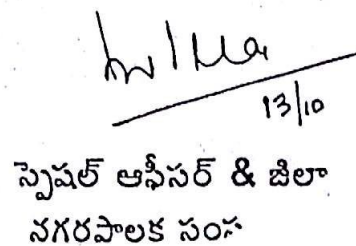 13/10
స్పెషల్ ఆఫీసర్ & జిలా
నగరపాలక సంస